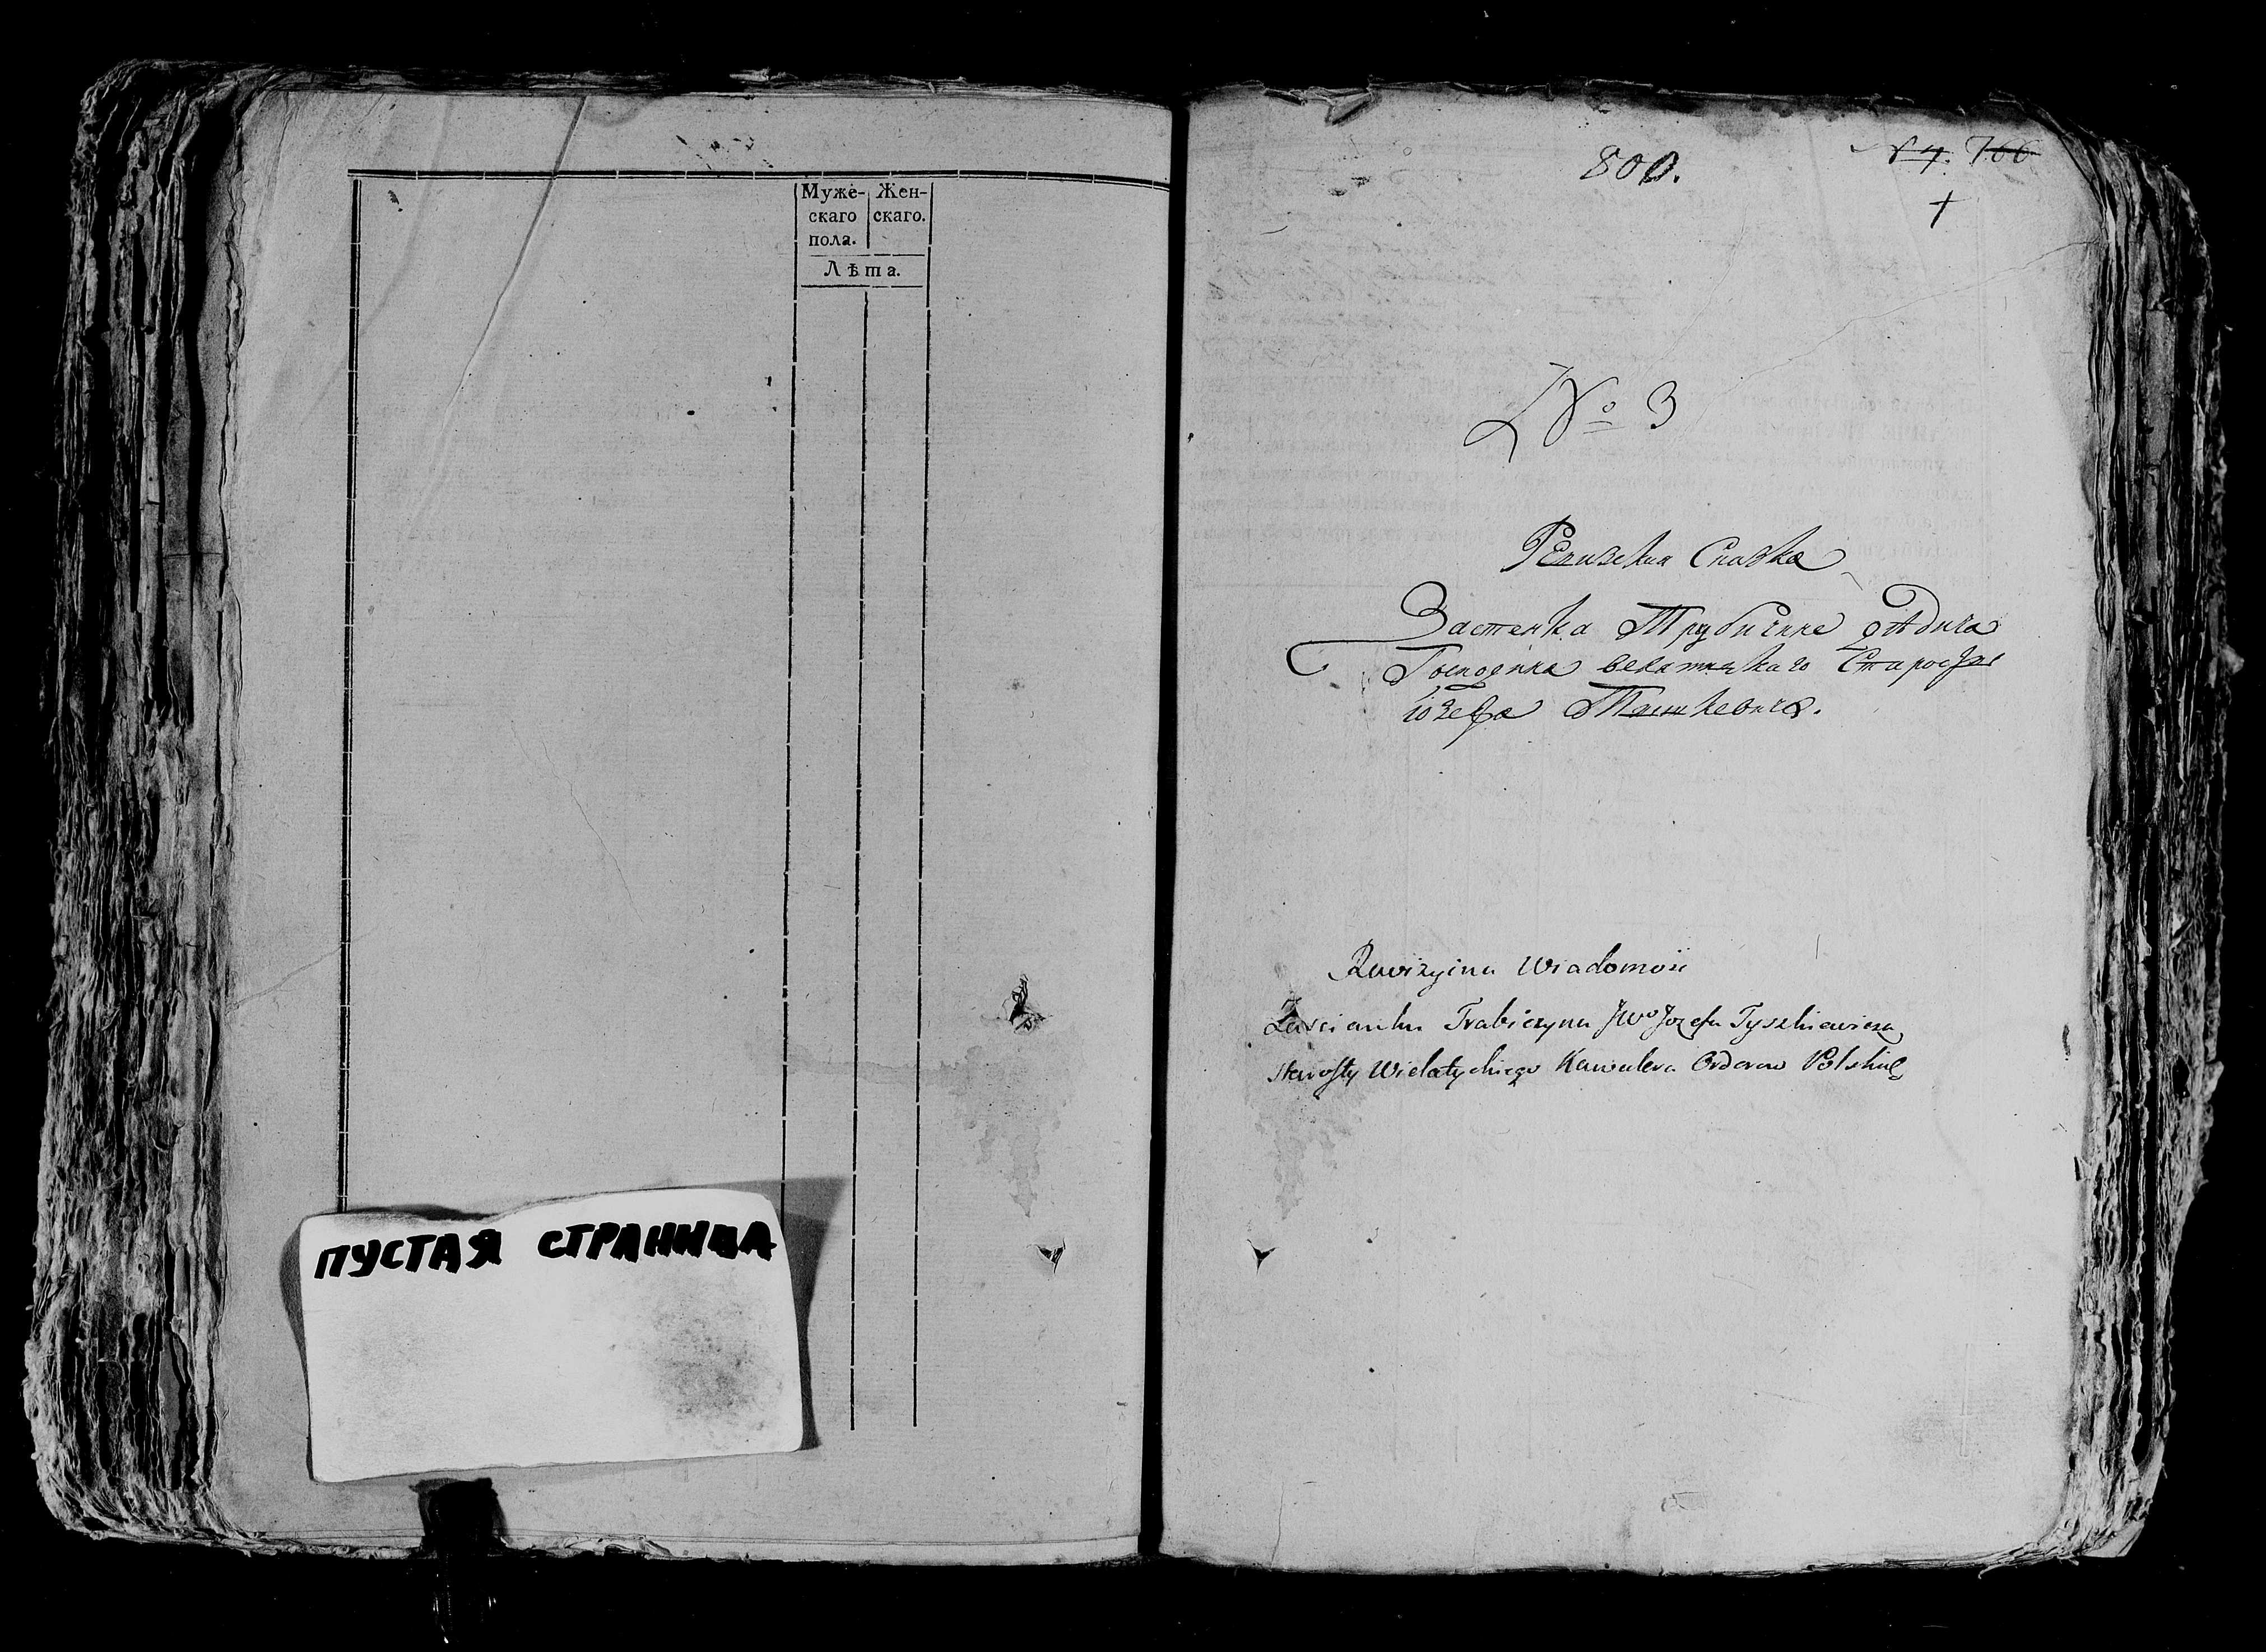 Муже- Жен-
скаго скаго.
пола.
Лѣта.
ПУСТАЯ СТРАНИЦА
800.
766
+
№ 3
Ревизкая Сказка
Застенка Трубичине
Господина велятицкаго Старосты
Юзефа Тышкевича.
Rewizyina Wiadomość
Zascianku Trabiczyna JWo Jozefa Tyszkiewicza
starosty Wielatyckiego Kawalera Orderow Polskich